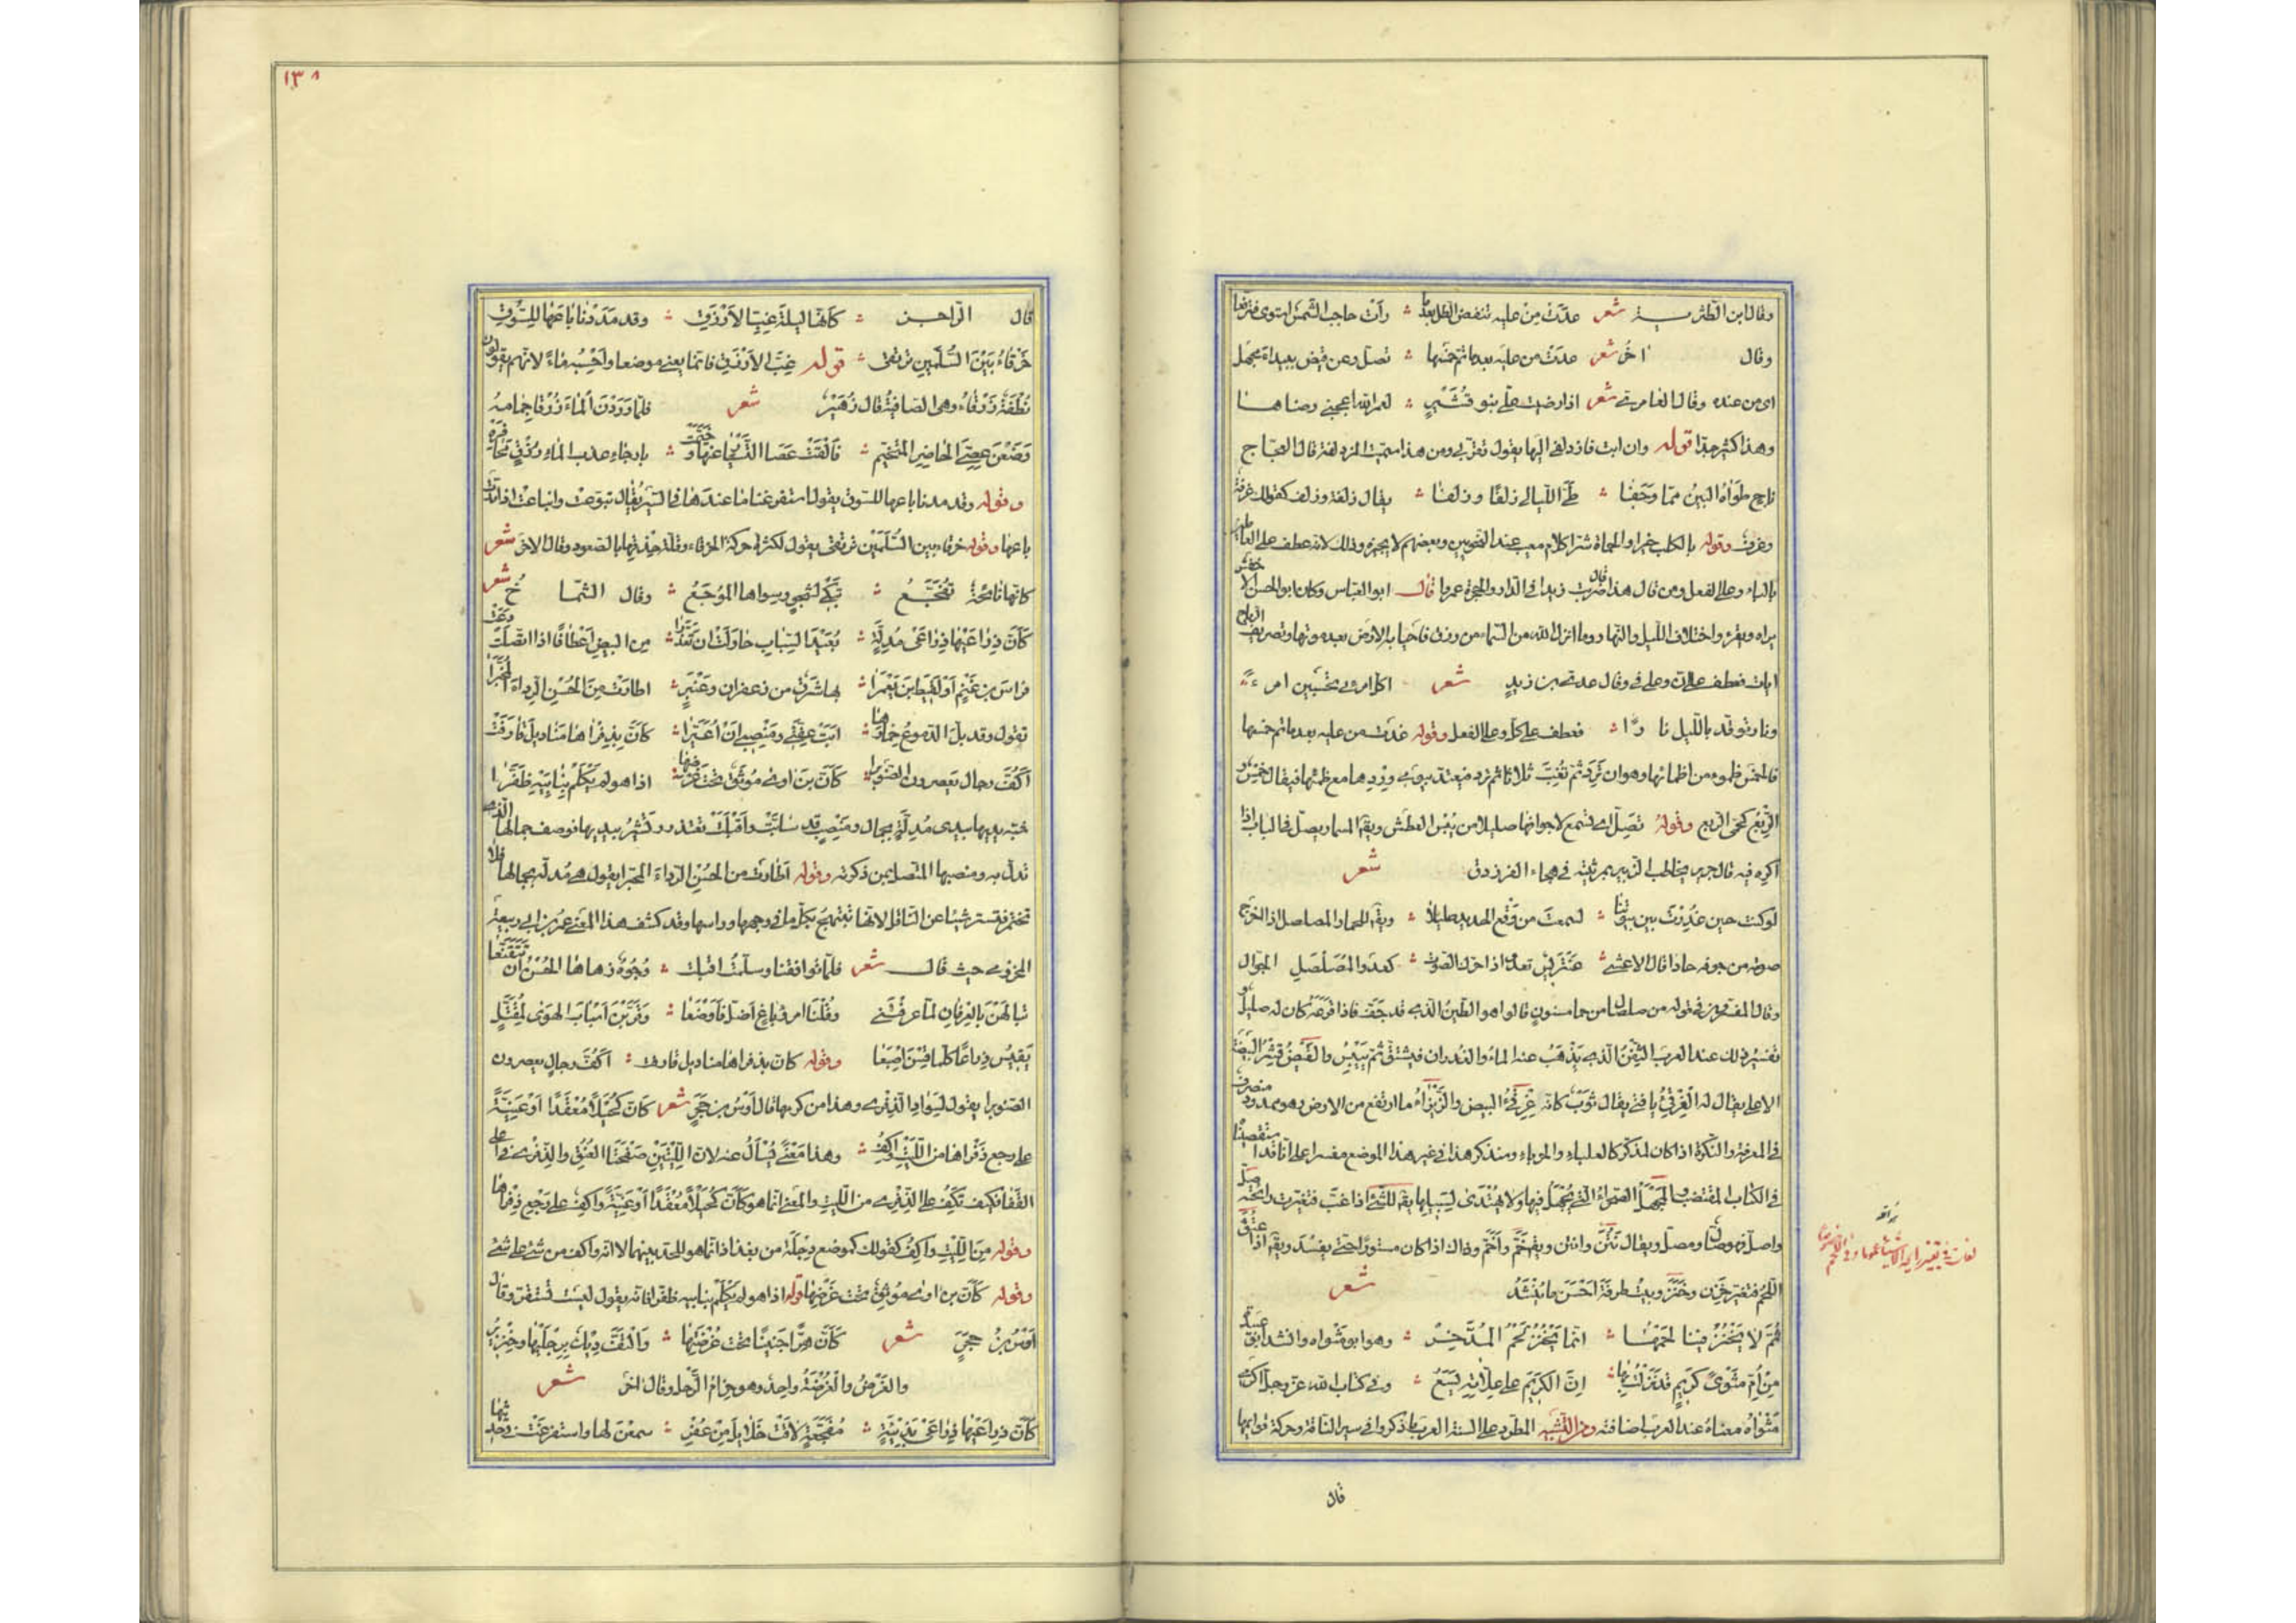 وقال ابن الطثرية شعر غدت من عليه تنفض الطل بعدما ؞ رأت حاجب الشمس استوى فترفعا
وقال اخر شعر غدت من عليه بعد ما تم خمسها ؞ تصل وعن قيض ببيداء مجهل
اى من عنده وقال العامرى شعر اذا رضيت علىّ بنو قُشَيْرٍ ؞ لعمر الله اعجبنى رضاها
وهذا كثير جدا قوله وان ابت فازدلفى اليها يقول تقربى ومن هذا سميت المزدلفة قال العجاج
ناج طواه الاين مما وجفا ؞ طىّ الليالى زلفًا وزلفا ؞ يقال زلفة وزلف كقولك غرفة
وغرف وقوله بالكلب خيرا والحماة شرا كلام معيب عند النحويين وبعضهم لا يجيزه وذلك لانه عطف على العاملين
بالباء وعلى الفعل ومن قال هذا قال ضربت زيدا فى الدار والحجرة عمرا قال ابو العباس وكان ابو الحسن الاخفش
يراه ويقرء واختلاف الليل والنهار وما انزل الله من السماء من رزق فاحيا به الارض بعد موتها وتصريف الرياح
ايات فعطف على ان وعلى فى وقال عدى بن زيدٍ شعر اكل امرىء تحسبين امرءً
ونار توقد بالليل نارًا ؞ فعطف على كل وعلى الفعل وقوله غدت من عليه بعد ما تم خمسها
فالخمس ظموء من اظمائها وهو ان تَرِد ثم تغبّ ثلاثا ثم ترد فيعتد بيومى وردها مع ظمئها فيقال خمس و
الرِّبْع كحمى الربع وقوله تصلّ اى تسمع لاجوافها صليلا من يُبْس العطش ويقال المسمار يصلّ فى الباب اذا
اكره فيه قال جرير يخاطب الزبير بمرثيته فى هجاء الفرزدق شعر
لو كنت حين غُرِرْتَ بين بيوتنا ؞ لسمعت من وَقْع الحديد صليلا ؞ ويقال للحمار المصلصل اذا اخرج
صوته من جوفه حادا قال الاعشى ؞ عَنْتَرِيْس تعدو اذا حرك الصوت ؞ كعدو المُصَلْصِلِ الجوّال
وقال المفسرون فى قوله من صلصال من حمإ مسنونٍ قالوا هو الطين الذى قد جَفّ فاذا قرعته كان له صليل و
تفسير ذلك عند العرب التِّقْنُ الذى يذهب عنه الماء والغدران فيتشقق ثم يَيْبَسُ والقَيْضُ قِشْرُ البيضة
الاعلى يقال له الغِرْقِئُ يا فتى يقال ثوبٌ كانه غِرْقِئُ البيض والزِّيْزَاءُ ما ارتفع من الارض وهو ممدود منصرف
فى المعرفة والنكرة اذا كان لمذكر كالعلباء والحرباء وسنذكر هذا فى غير هذا الموضع مفسرا على انا قد استقصيناه
فى الكتاب المقتضب والمَجْهَلُ الصحراء التى يُجْهَل فيها ولا يُهْتَدى لسبيلها يقال للشىء اذا غبّ فتغيرت رايحته صلّ
واصلّ فهو صال ومصلّ ويقال نَتُنَ وانتن ويقال خَمَّ واَخَمَّ وذاك اذا كان مستورًا حتى يفسد ويقال اذا عَتُقَ
اللحم فتغير خَزِن وخَنِزَ وبيت طرفة احسن ما يُنْشَدُ شعر
ثمّ لا يَخْنُزُ فينا لحمها ؞ انّما يَخْنُزُ لَحْمُ المُدَّخِرْ ؞ وهو ابو مثواه وانشد ابو عبيدة
مِنْ اُمِّ مَثْوًى كَرِيمٍ قد نزلتُ بها ؞ انّ الكريمَ على عِلّاتهِ يَسَعُ ؞ وفى كتاب الله عز وجل اكرمى
مَثْواه معناه عند العرب اضافته ومن التشبيه المطرد على السنة العرب ما ذكروا فى سير الناقة وحركة قوايمها
قال
١٣٨
قال الراجز ؞ كأنّها ليلة غِبّ الاَزْرَقِ ؞ وقد مَدَدْنا بَاعَها للسَّوْقِ
خَرْقَاءُ بَيْنَ السُّلَّمَيْنِ تَرْتَقى ؞ قوله غِبَّ الازرقِ فانما يعنى موضعا واَحْسِبُه مَاءً لانهم يقولون
نُطْفَةٌ زرقاءُ وهى الصافيةُ قال زُهَيْر شعر فلمّا وَرَدْنَ الماءَ زُرْقًا جمامهُ
وَضَعْنَ عِصِىَّ الحاضرِ المُتَخَيِّمِ ؞ فَاَلْقَتْ عَصَا التَّسْيَارِ عنها وخَيَّمَتْ ؞ بارجاءِ عذب الماءِ زُرْقٍ مَحَافِرُهْ
وقوله وقد مددنا باعها للسوق يقول استفرغنا ما عندها فى السير يُقال تبوّعَتْ وانباعَتْ اذا مدّت
باعها وقوله خرقاء بين السُّلَّمَيْن ترتقى يقول لكثرة حركة الخرقاء وقلة حِذْقِها بالصعود وقال الاخر شعر
كانها نائحةٌ تُفَجَّعُ ؞ تَبْكى لِشَجْوٍ وسِواها المُوْجَعُ ؞ وقال الشمّاخ شعر
كَأَنَّ ذِرَاعَيْها ذِرَاعَىْ مُدِلَّةٍ ؞ بُعَيْدَ السِّبَابِ حاوَلَتْ ان تَعَذَّرَا ؞ مِن البيضِ اَعْطَافًا اذا اتّصلت دعت
فراسَ بن غَنْمٍ اَوْ لَقِيْطَ ابنَ يَعْمَرَا ؞ بها شَرَقٌ من زعفران وعَنْبَرٍ ؞ اطارت مِنَ الحُسْنِ الرداءَ المُحَبَّرَا
تقول وقد بلّ الدموعُ خِمَارَها ؞ اَبَتْ عِفَّتِى ومَنْصِبِى اَنْ اُعَيَّرَا ؞ كَأنَّ بذِفْراها مَناديلَ قارَفَتْ
اَكُفَّ رجالٍ يعصرون الصَّنَوْبَرَا ؞ كَأنَّ بنَ اوى مُوْثَقٌ تحت غَرْضِها ؞ اذا هو لم يَكْلِمْ بِنَابَيْهِ ظَفَّرَا
شبّه يديها بيدى مُدِلَّةٍ بجمالٍ ومَنْصِبٍ قد سابّتْ واَقْبَلَتْ تعتذر وتُشير بيديها فوصف جمالها الذى
تدلّ به ومنصبها المتّصل بمن ذكرته وقوله اَطارت من الحسن الرداءَ المحبّرا يقول هى مُدلّة بجمالها فلا
تختمر فتستر شيئا عن الناظر لانها تبتهج بكل ما فى وجهها وراسها وقد كشف هذا المعنى عمر بن ابى ربيعة
المخزومى حيث قال شعر فلمّا تواقفنا وسلّمتُ اقبلت ؞ وُجُوهٌ زهاها الحُسْنُ اَن تَتَقَنَّعَا
تَبَالَهْنَ بالعِرْفَانِ لمّا عرفْنَنِى وقُلْنَ امرؤٌ باغٍ اَضلّ فَاَوْضَعَا ؞ وقَرَّبْنَ اَسْبَابَ الهوى لِمُقَتَّلٍ
يَقِيْسُ ذِرَاعًا كلّما قِسْنَ اِصْبَعَا وقوله كان بذفراها مناديل قارفت ؞ اكُفَّ رجالٍ يعصرون
الصنوبرا يقول لسواد الذِّفْرى وهذا من كرمها قال اَوْسُ بن حَجَرٍ شعر كانّ كُحَيْلًا مُعْقَدًا اَوْ عَنِيَّةً
على رجع ذِفْراها من اللِّيْتِ واكِفُ ؞ وهذا مَعْنًى يُسْأَلُ عنه لان اللِّيْتَيْنِ صَفْحَتَا العُنُقِ والذفرى فى اعلى
القَفَا فكيف تَكِفُ على الذفرى من الليت والمعنى انما هو كَأنَّ كُحَيْلًا مُعْقَدًا اَوْ عَنِيَّةً واكِفٌ على رَجْعِ ذِفْراها
وقوله مِنَ اللِّيْتِ واكِفُ كقولك كموضع دِجْلَةَ من بغداذ انّما هو للحد بينهما لا انه واكف من شىءٍ على شىءٍ
وقوله كأنّ بن اوى مُوْثقٌ تحت غَرْضِها قوله اذا هو لم يَكْلِمْ بنابيه ظفّرا فانه يقول ليست تستقرّ وقال
اَوْسُ بنُ حَجَرٍ شعر كَأنَّ هِرًّا جَنِيْبًا تحت غُرْضَتِها ؞ وَالْتَفَّ دِيْكٌ بِرِجْلَيْها وخِنْزِيْرُ
والغَرْضُ والغُرْضَةُ واحدٌ وهو حِزامُ الرَّحلِ وقال اخر شعر
كَأنَّ ذِراعَيْها ذِراعَىْ بَذِيَّةٍ ؞ مُفَجَّعَةٍ لاقَتْ خَلائِلَ مِنْ عُفْرِ ؞ سمعْنَ لها واستفرغَتْ فى حديثها